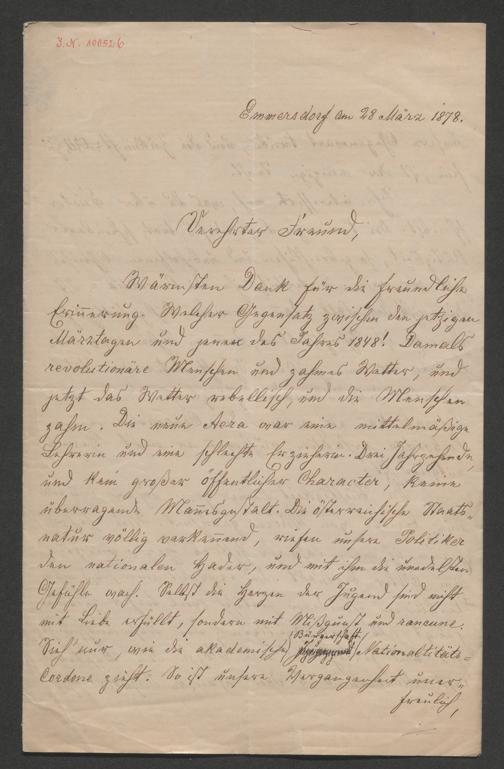 J.N. 100526
Emmersdorf am 28 März 1878.
Verehrter Freund,
Wärmsten Dank für die freundliche
Erinnerung. Welcher Gegensatz zwischen den jetzigen
Märztagen und jenen des Jahres 1848! Damals
revolutionäre Menschen und zahmes Wetter, und
jetzt das Wetter rebellisch, und die Menschen
zahm. Die neue Aera war eine mittelmäßige
Lehrerin und eine schlechte Erzieherin. Drei Jahrzehende,
und kein großer öffentlicher Character, keine
überragende Mannsgestalt. Die österreichische Staats-
natur völlig verkennend, riefen unsere Politiker
den nationalen Hader, und mit ihm die unedelsten
Gefühle wach. Selbst die Herzen der Jugend sind nicht
mit Liebe erfüllt, sondern mit Mißgunst und rancune.
Sieh' nur, wie die akademische Bürgerschaft Nationaltitäts-
cordone zieht. So ist unsere Vergangenheit uner-
freulich,